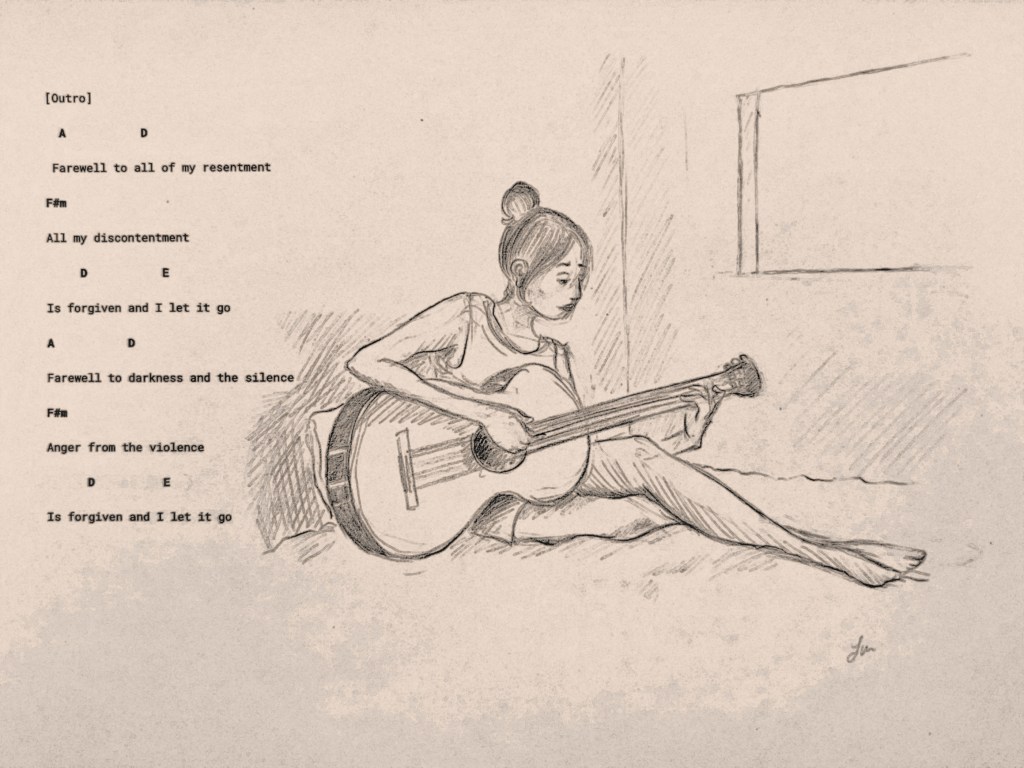 [Outro]
A D
Farewell to all of my resentment
F#m
All my discontentment
D E
Is forgiven and I let it go
A D
Farewell to darkness and the silence
F#m
Anger from the violence
D E
Is forgiven and I let it go